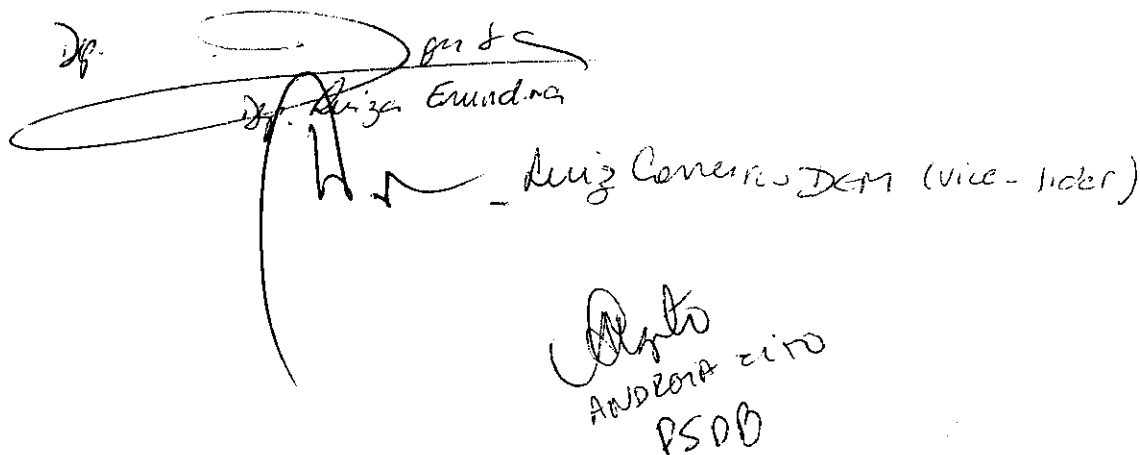 Dep.
Dep. Luiza Erundina
Luiz Carreira DEM (vice-líder)
ANDREIA ZITO
PSDB